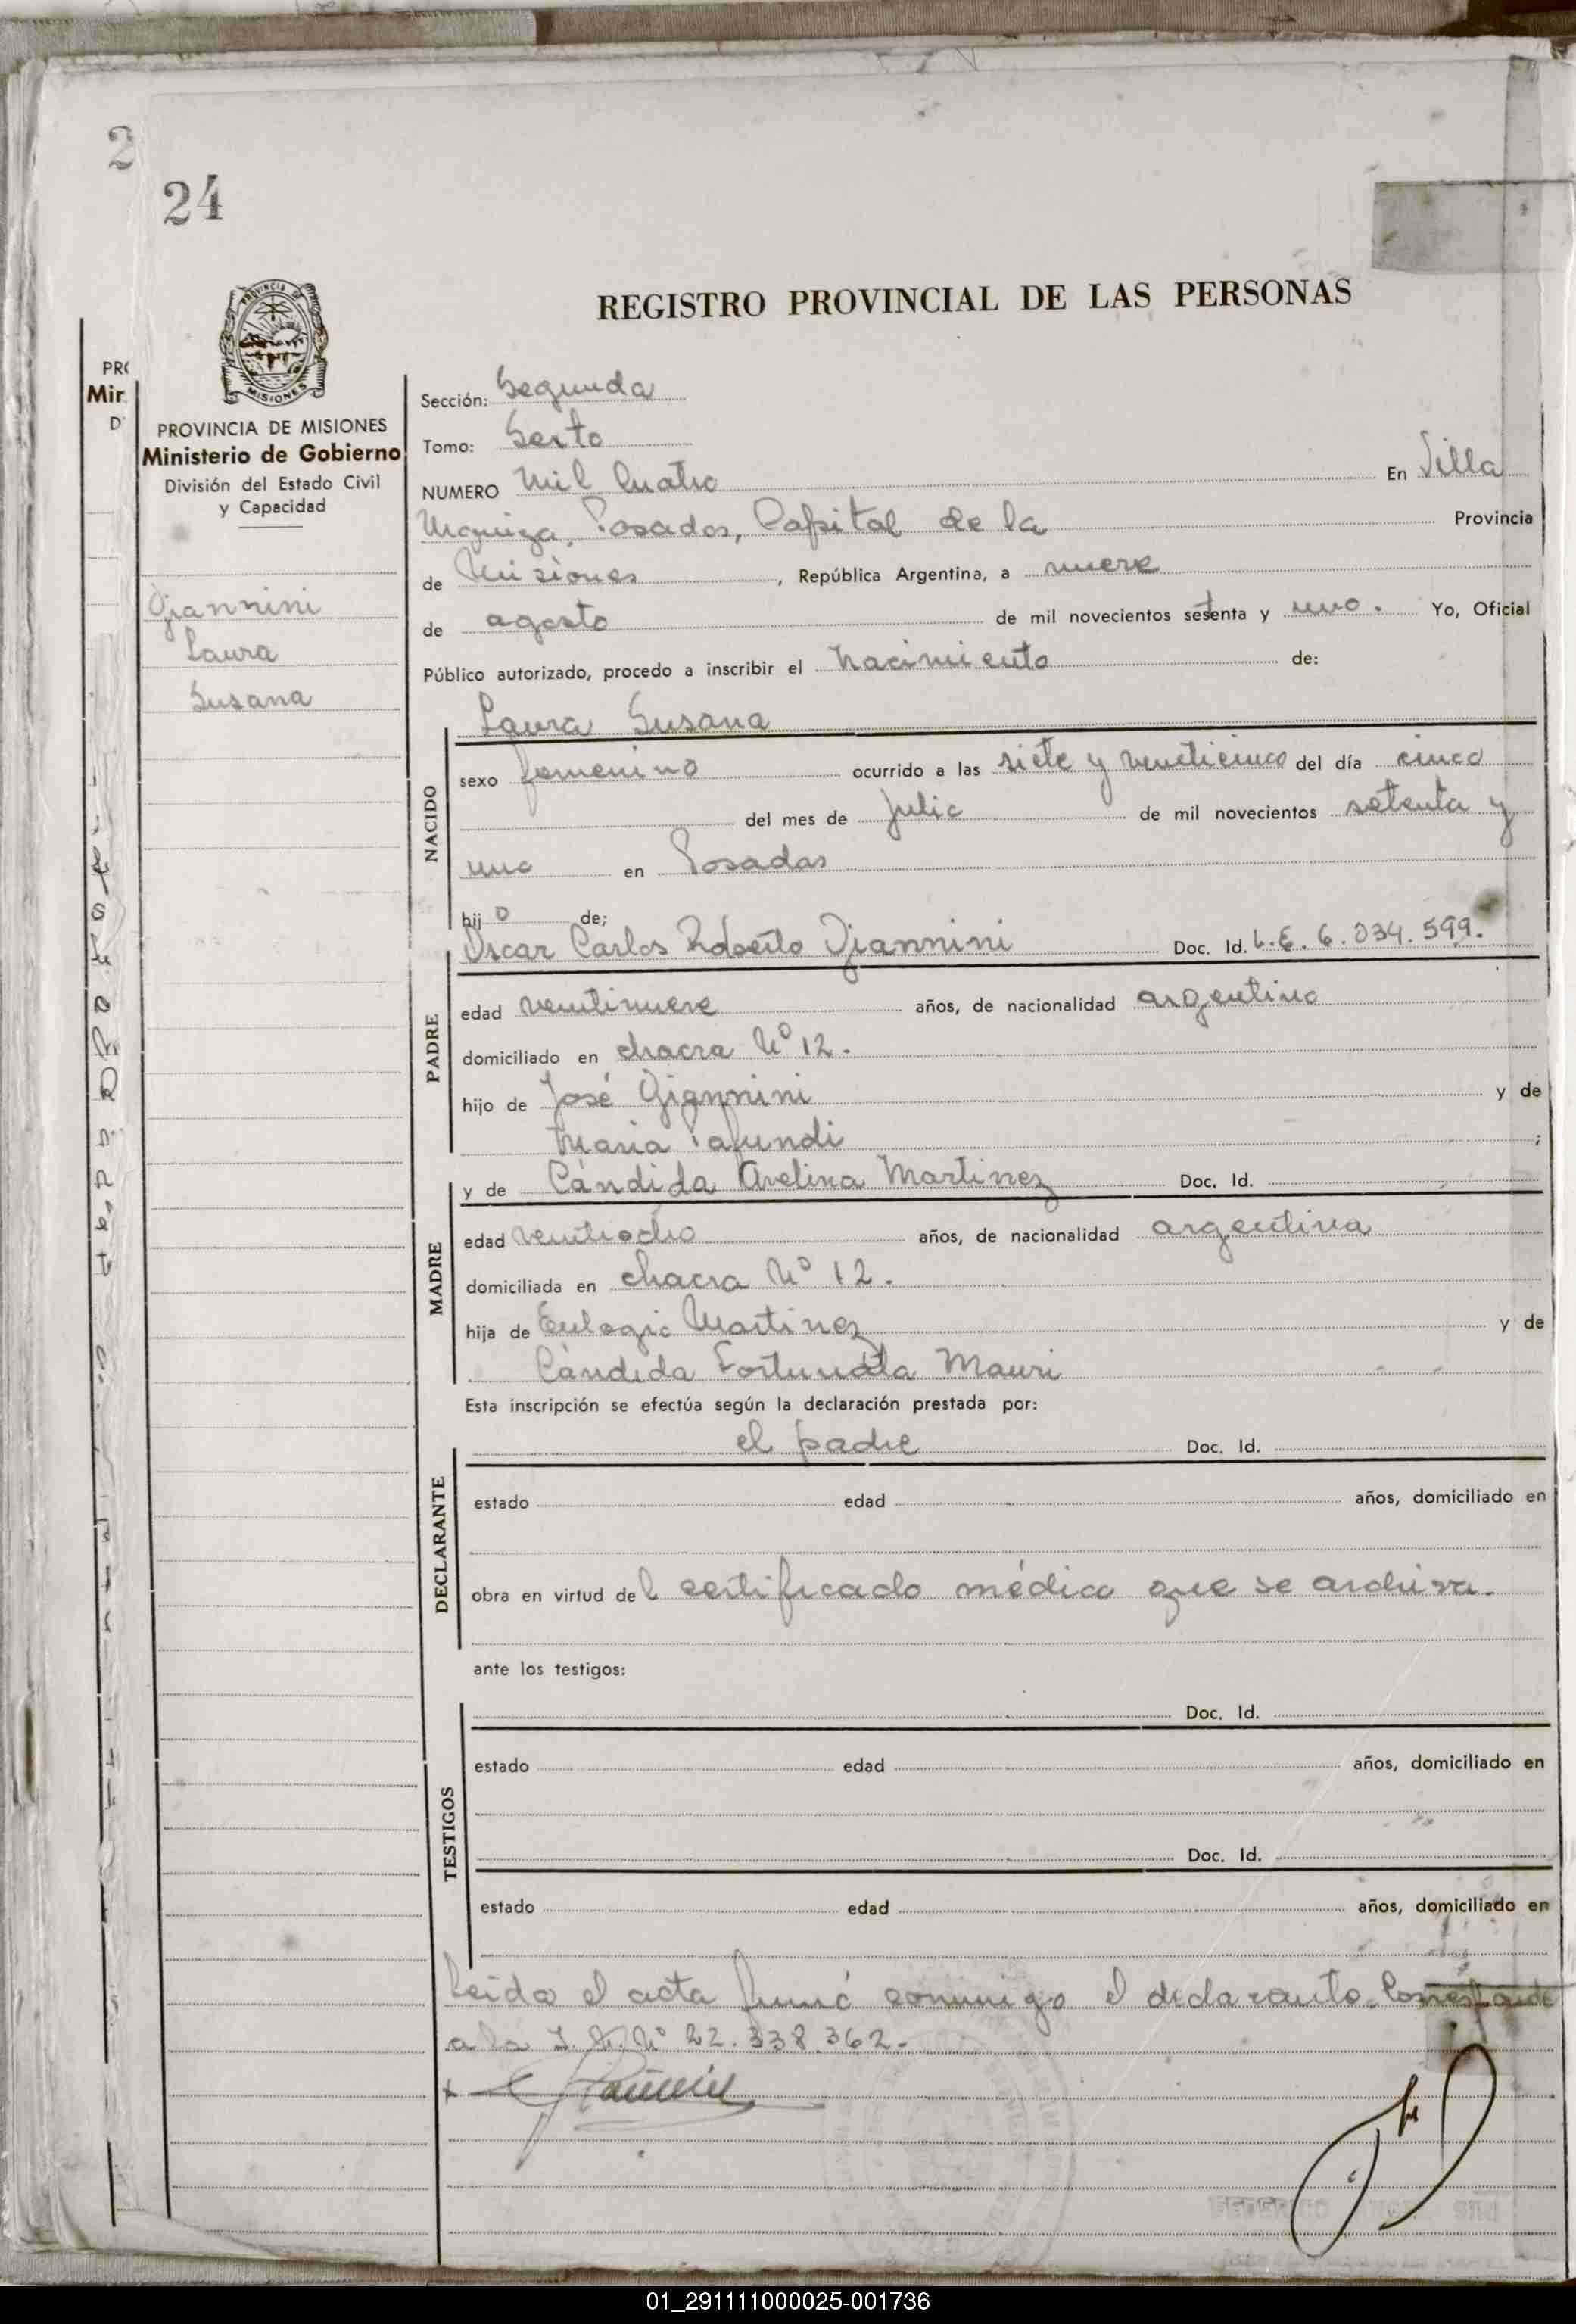 2
24
PROVINCIA DE
MISIONES
REGISTRO PROVINCIAL DE LAS PERSONAS
PROVINCIA DE MISIONES
Ministerio de Gobierno
División del Estado Civil
y Capacidad
Giannini
Laura
Susana
Sección: Segunda
Tomo: Sexto
NUMERO Mil Cuatro En Villa
Urquiza, Posadas, Capital de la Provincia
de Misiones, República Argentina, a nueve
de agosto de mil novecientos setenta y uno. Yo, Oficial
Público autorizado, procedo a inscribir el nacimiento de:
Laura Susana
NACIDO
sexo femenino ocurrido a las siete y veinticinco del día cinco
del mes de Julio de mil novecientos setenta y
uno en Posadas
hijo de;
Oscar Carlos Roberto Giannini Doc. Id. L.E. 6.034.599.
PADRE
edad veintinueve años, de nacionalidad argentino
domiciliado en chacra Nº 12.
hijo de José Giannini y de
Maria Pafundi ;
y de Cándida Avelina Martinez Doc. Id.
MADRE
edad veintiocho años, de nacionalidad argentina
domiciliada en chacra Nº 12.
hija de Eulogio Martinez y de
Cándida Fortunata Mauri
Esta inscripción se efectúa según la declaración prestada por:
el padre Doc. Id.
DECLARANTE
estado edad años, domiciliado en
obra en virtud del certificado médico que se archiva.
ante los testigos:
Doc. Id.
TESTIGOS
estado edad años, domiciliado en
Doc. Id.
estado edad años, domiciliado en
Leida el acta firmó conmigo el declarante. Corresponde
a la I. N. Nº 22.338.362.
FEDERICO
01_291111000025-001736